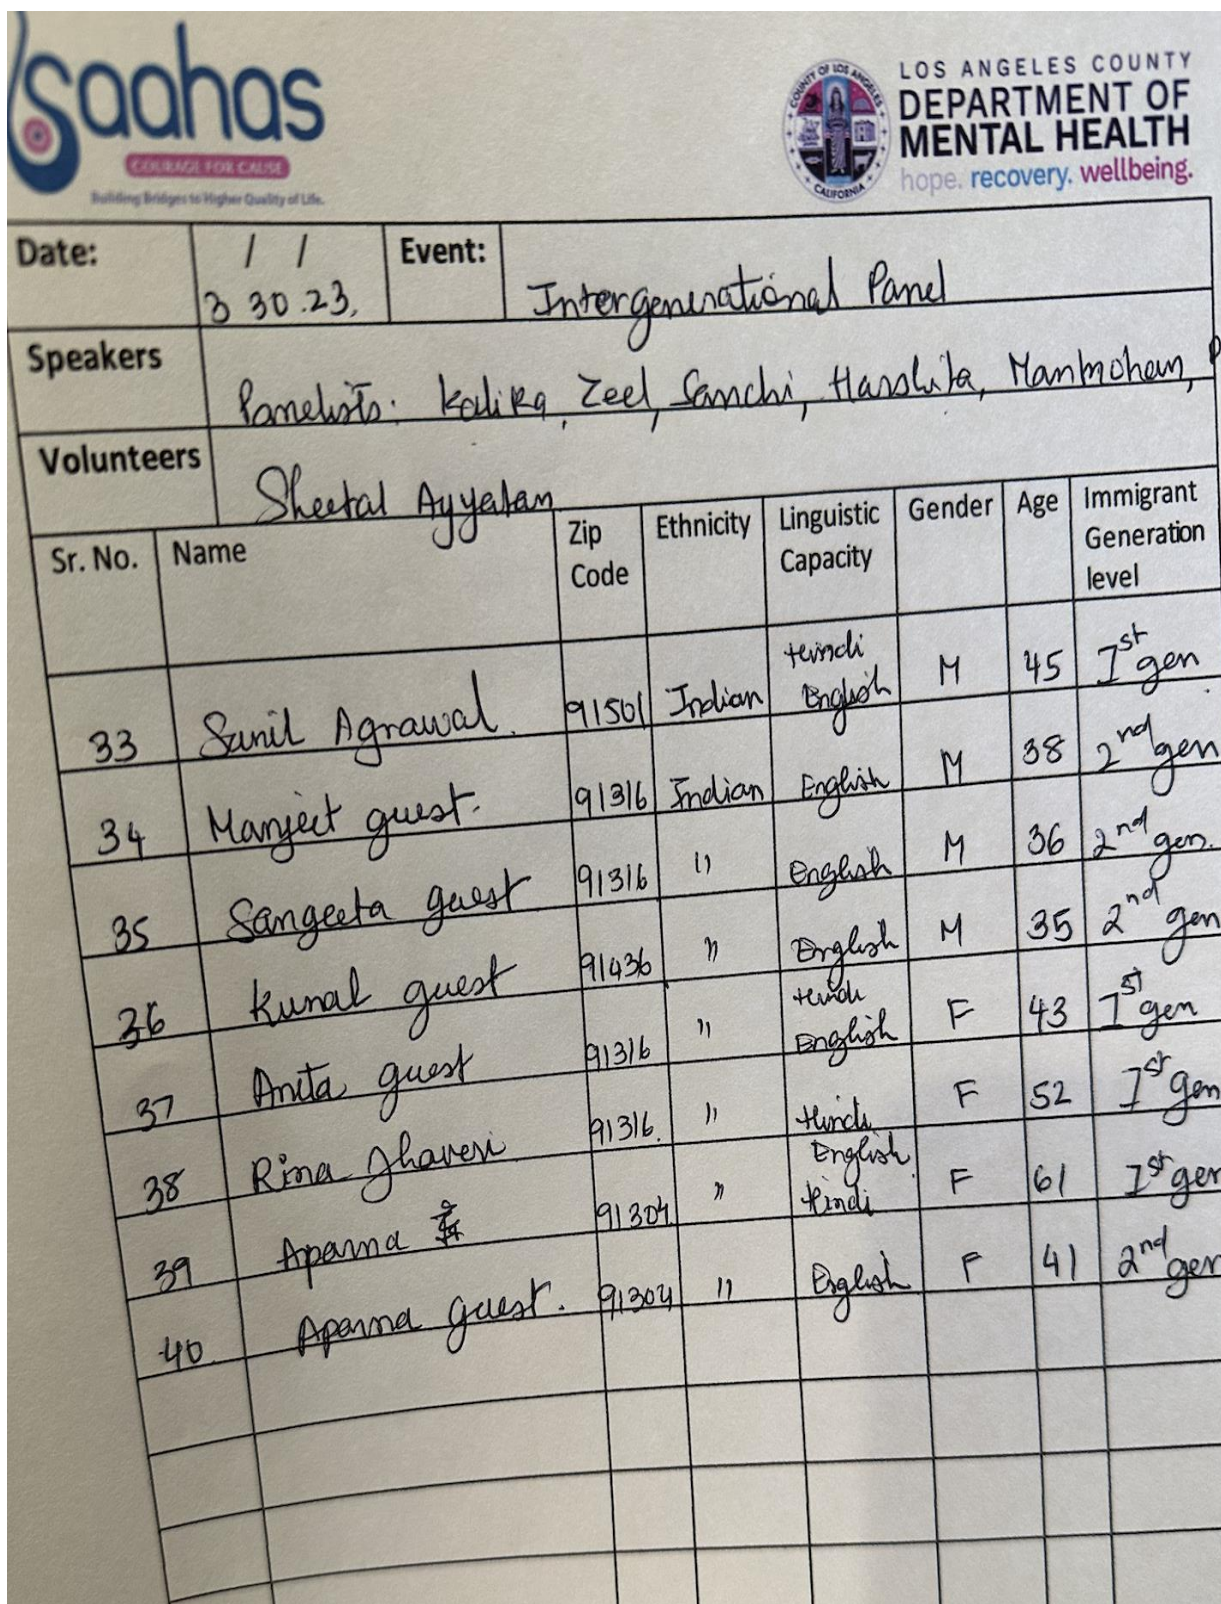 Saahas
COURAGE FOR CAUSE
Building Bridges to Higher Quality of Life.
COUNTY OF LOS ANGELES
CALIFORNIA
LOS ANGELES COUNTY
DEPARTMENT OF
MENTAL HEALTH
hope. recovery. wellbeing.
Date: / / 3 30.23. Event: Intergenerational Panel
Speakers Panelists: Kalika, Zeel, Sanchi, Harshita, Manmohan,
Volunteers Sheetal Ayyatan
Sr. No. Name Zip Code Ethnicity Linguistic Capacity Gender Age Immigrant Generation level
33 Sunil Agrawal. 91501 Indian Hindi English M 45 1st gen
34 Manjeet guest. 91316 Indian English M 38 2nd gen
35 Sangeeta guest 91316 " English M 36 2nd gen.
36 Kunal guest 91436 " English M 35 2nd gen
37 Anita guest 91316 " Hindi English F 43 1st gen
38 Rina Jhaveri 91316. " Hindi F 52 1st gen
39 Aparna 91304 " English Hindi F 61 1st gen
40 Aparna guest. 91304 " English F 41 2nd gen